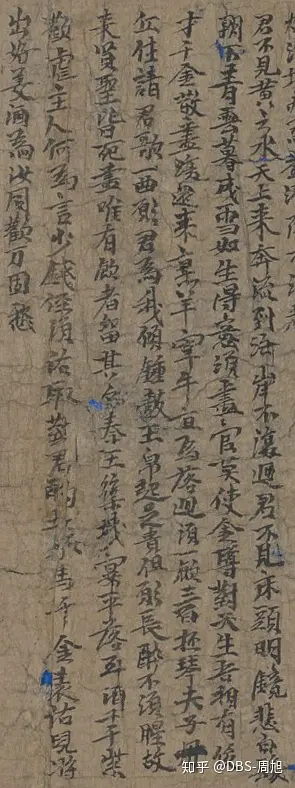 君不見黃河之水天上来奔流到海岸不復迴君不見床頭明鏡悲白髮
朝如青雲暮成雪生得意須盡官莫使金罇對天生吾相有俊
才千金散盡還來烹羊宰牛且爲落迴須一飲三百杯琴夫子丹
丘生請君歌一曲願君爲我傾鍾鼓玉帛豈足貴但願長醉不須醒故
来賢聖皆死盡唯有飲者留其名秦王築城宴平落斗酒十千
歡虐主人何爲言少錢徑須沽取君酌五花馬千金裘呼兒將
出將美酒爲汝同歡万
知乎 @DBS-周旭